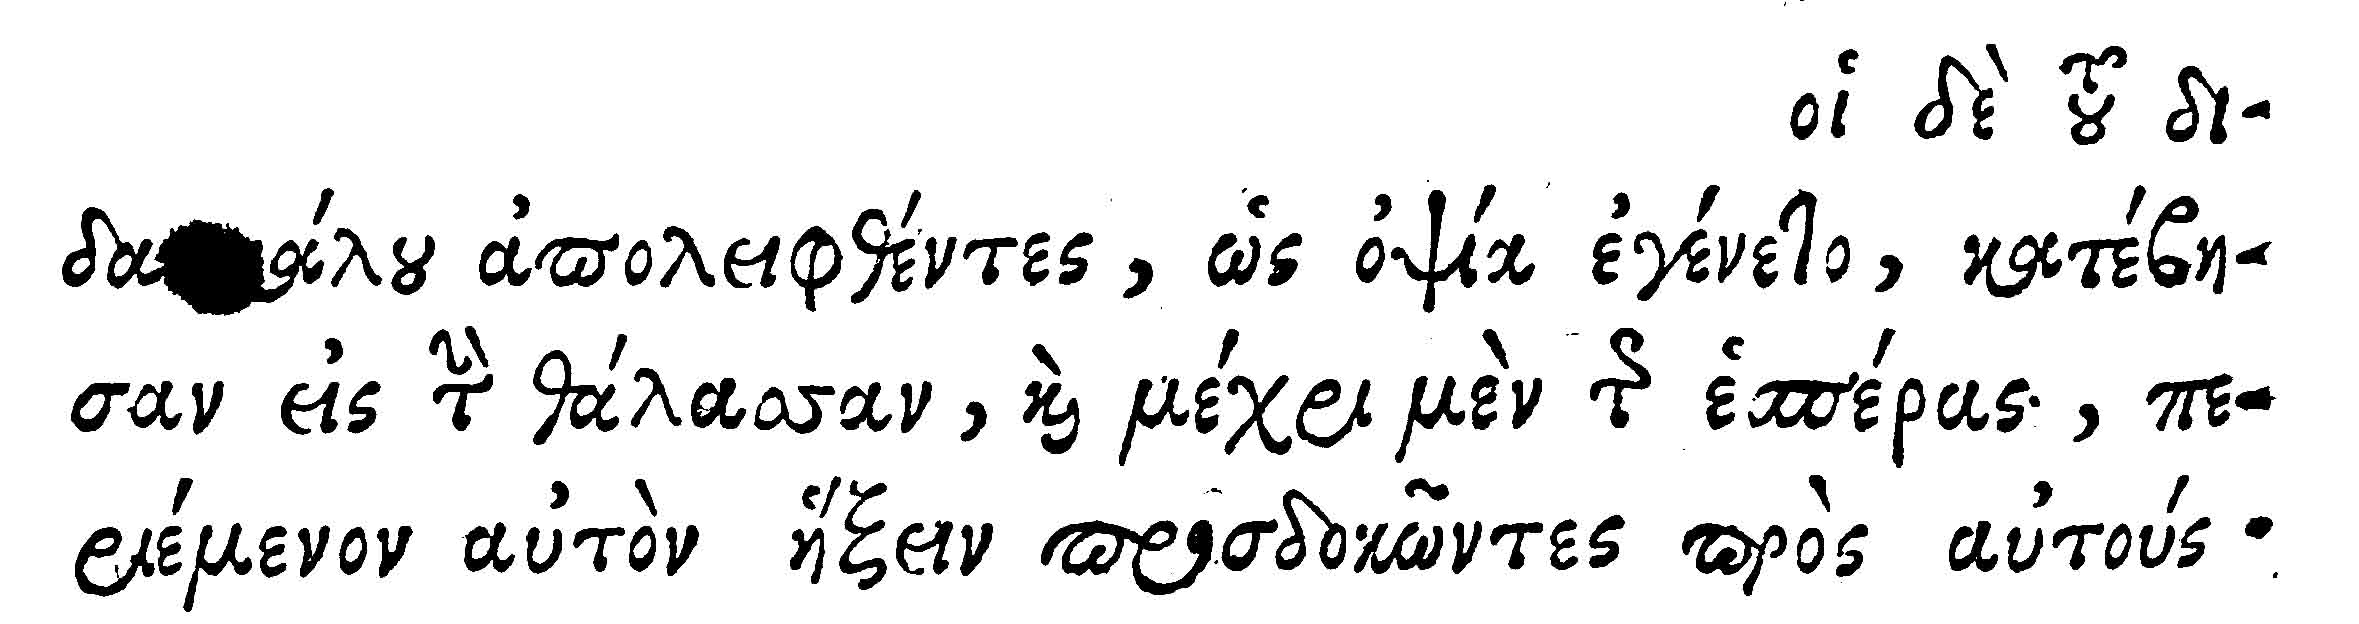 οἱ δὲ τοῦ δι-
ἀπολειφθέντες, ὡς ὀψία ἐγένετο, κατέβη-
σαν εἰς τὴν θάλασσαν, καὶ μέχρι μὲν τῆς ἑσπέρας, πε-
ριέμενον αὐτὸν ἥξειν προσδοκῶντες πρὸς αὐτούς·